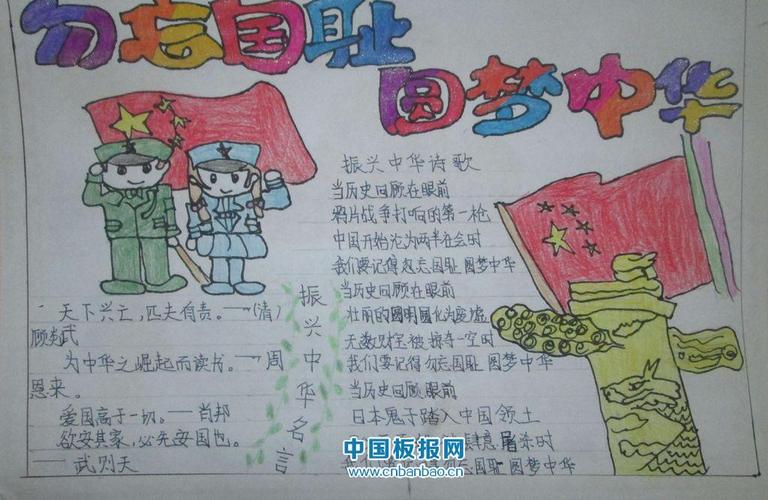 勿忘国耻
圆梦中华
振兴中华诗歌
当历史回顾在眼前
鸦片战争打响的第一枪
中国开始沦为两半社会时
我们要记得勿忘国耻 圆梦中华
当历史回顾在眼前
壮丽的圆明园化为废墟
无数财宝被掠夺一空时
我们要记得勿忘国耻 圆梦中华
当历史回顾眼前
日本鬼子踏入中国领土
肆意屠杀时
勿忘国耻 圆梦中华
振兴中华名言
天下兴亡,匹夫有责。——(清)
顾炎武
为中华之崛起而读书。——周
恩来。
爱国高于一切。——肖邦
欲安其家,必先安国也。
——武则天
中国板报网
www.cnbanbao.cn